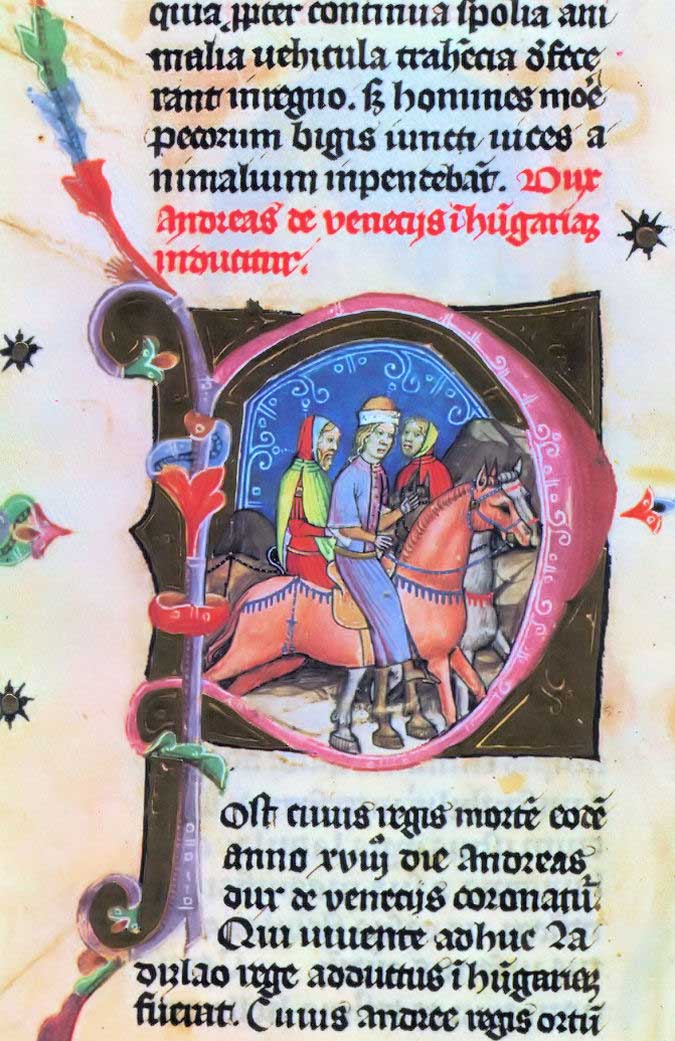 quia ꝓpter continua spolia ani
malia uehicula trahēcia d̄fece
rant in regno. sꝫ homines moē
pecorum bigis iuncti uices a
nimalium inpendebāt. Dux
Andreas de venecijs ī hūgariaꝫ
inducitur.
Post cuius regis mortē eodē
anno xviij die Andreas
dux de venecijs coronatur.
Qui uiuente adhuc La
dizlao rege adductus ī hūgariaꝫ
fuerat. Cuius andree regis ortū